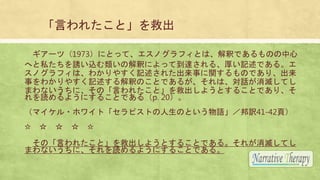 「言われたこと」を救出
ギアーツ（1973）にとって、エスノグラフィとは、解釈であるものの中心
へと私たちを誘い込む類いの解釈によって到達される、厚い記述である。エ
スノグラフィは、わかりやすく記述された出来事に関するものであり、出来
事をわかりやすく記述する解釈のことであるが、それは、対話が消滅してし
まわないうちに、その「言われたこと」を救出しようとすることであり、そ
れを読めるようにすることである（p. 20）。
（マイケル・ホワイト「セラピストの人生のという物語」／邦訳41-42頁）
☆ ☆ ☆ ☆ ☆
その「言われたこと」を救出しようとすることである。それが消滅してし
まわないうちに、それを読めるようにすることである。
Narrative Therapy